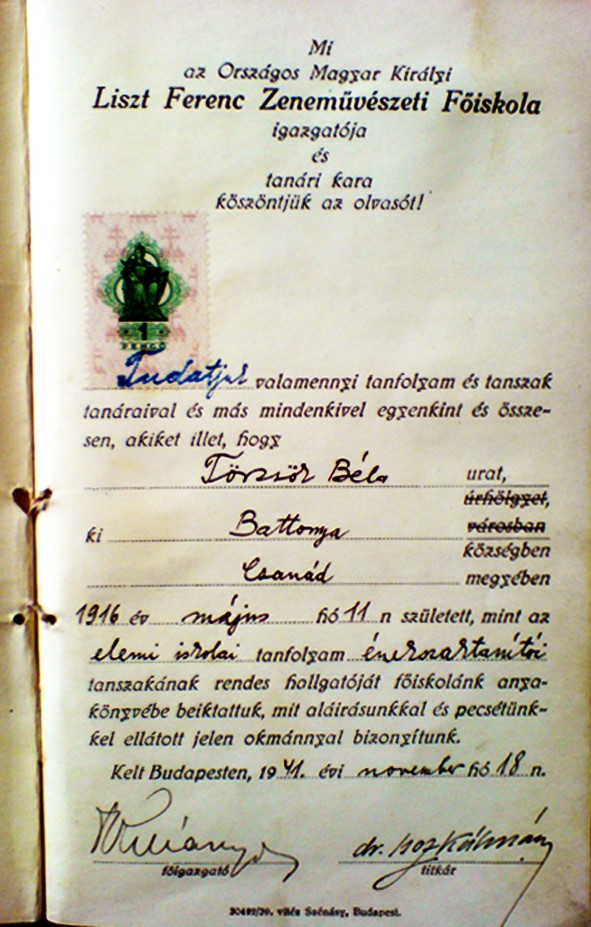 Mi
az Országos Magyar Királyi
Liszt Ferenc Zeneművészeti Főiskola
igazgatója
és
tanári kara
köszöntjük az olvasót!
1
PENGŐ
Tudatjuk valamennyi tanfolyam és tanszak
tanáraival és más mindenkivel egyenkint és össze-
sen, akiket illet, hogy
Törzsök Béla urat,
úrhölgyet,
ki Battonya városban
községben
Csanád megyében
1916 év május hó 11 n született, mint az
elemi iskolai tanfolyam énekszaktanítói
tanszakának rendes hallgatóját főiskolánk anya-
könyvébe beiktattuk, mit aláírásunkkal és pecsétünk-
kel ellátott jelen okmánnyal bizonyítunk.
Kelt Budapesten, 1941. évi november hó 18 n.
dr. Kálmán
főigazgató titkár
vitéz Budapest.